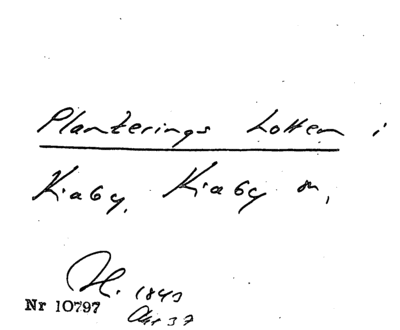 Planterings Lotten i
Kiaby, Kiaby sn,
H. 1843
Nr 10797
Akt 37